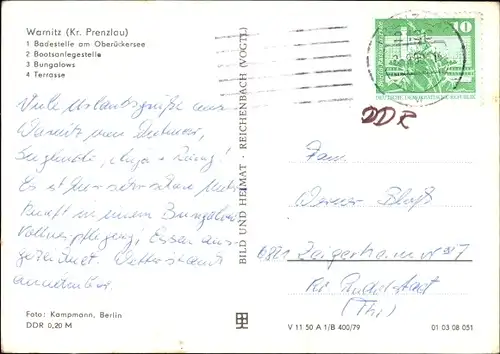 Warnitz (Kr. Prenzlau)
1 Badestelle am Oberückersee
2 Bootsanlegestelle
3 Bungalows
4 Terrasse
Viele Urlaubsgrüße aus
Warnitz von Dietmar,
Es ist hier sehr schön. Unter
kunft in einem Bungalow
Vollverpflegung, Essen aus-
gezeichnet. Wetter
annehmbar.
Foto: Kampmann, Berlin
DDR 0,20 M
BILD UND HEIMAT · REICHENBACH (VOGTL)
10
DEUTSCHE DEMOKRATISCHE REPUBLIK
DDR
Fam.
Werner
6821 Zeigerheim Nr 7
Kr Rudolstadt
(Thür)
V 11 50 A 1/B 400/79
01 03 08 051